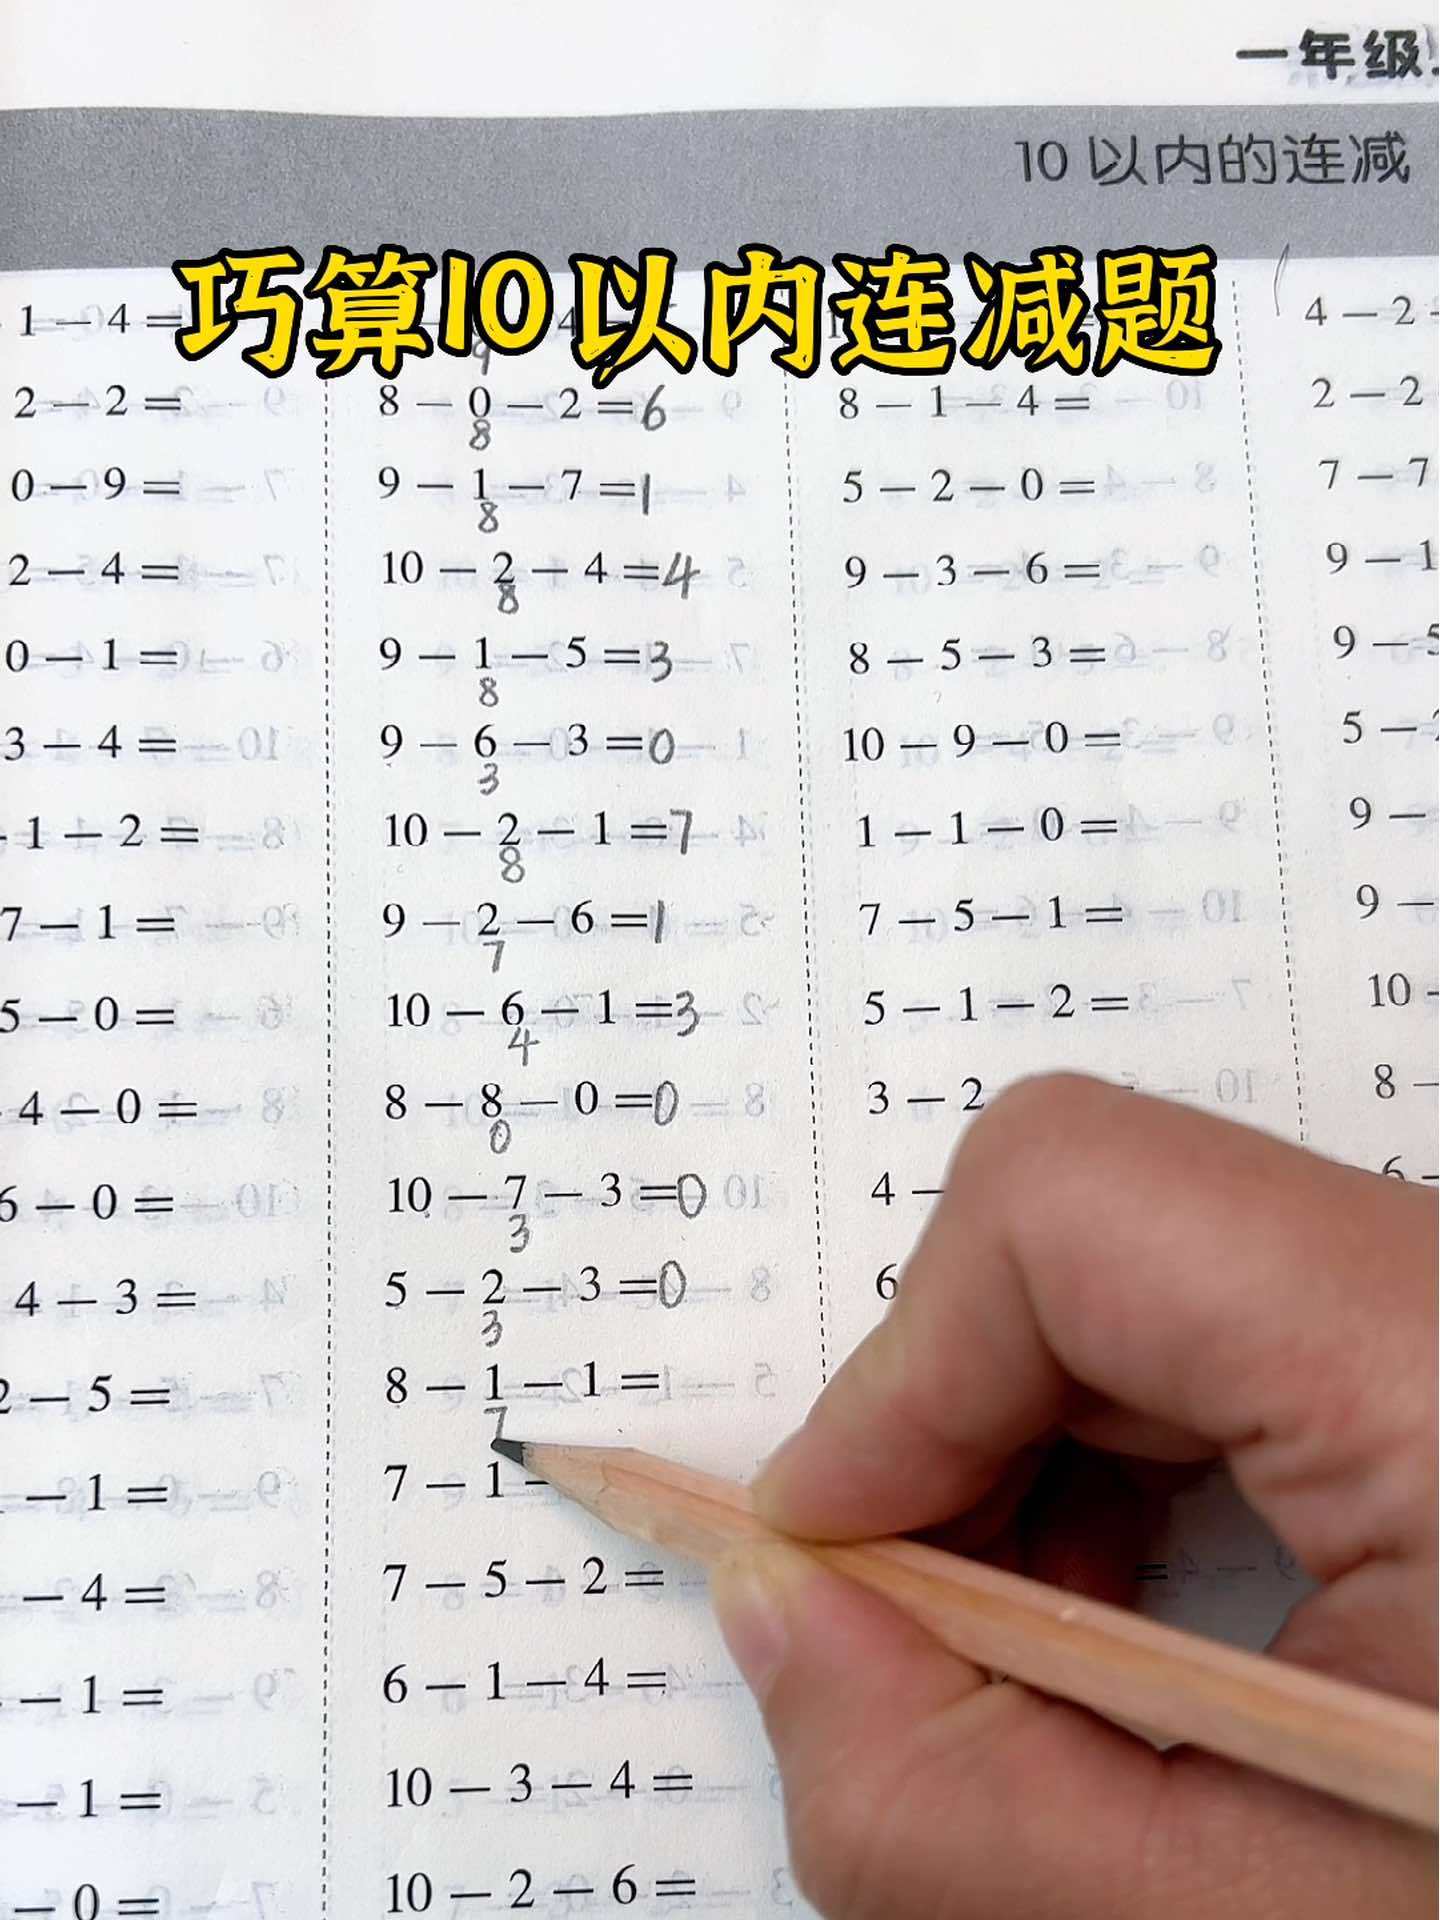 一年级
10 以内的连减
巧算10以内连减题
1 − 4 =
4 − 2
2 − 2 =
8 − 0 − 2 = 6
8
8 − 1 − 4 =
2 − 2
0 − 9 =
9 − 1 − 7 = 1
8
5 − 2 − 0 =
7 − 7
2 − 4 =
10 − 2 − 4 = 4
8
9 − 3 − 6 =
9 − 1
0 − 1 =
9 − 1 − 5 = 3
8
8 − 5 − 3 =
9 − 5
3 − 4 =
9 − 6 − 3 = 0
3
10 − 9 − 0 =
5 −
− 1 − 2 =
10 − 2 − 1 = 7
8
1 − 1 − 0 =
9 −
7 − 1 =
9 − 2 − 6 = 1
7
7 − 5 − 1 =
9 −
5 − 0 =
10 − 6 − 1 = 3
4
5 − 1 − 2 =
10 −
4 − 0 =
8 − 8 − 0 = 0
0
3 − 2
8 −
6 − 0 =
10 − 7 − 3 = 0
3
4 −
6 −
4 − 3 =
5 − 2 − 3 = 0
3
6
2 − 5 =
8 − 1 − 1 =
7
− 1 =
7 − 1 −
− 4 =
7 − 5 − 2 =
=
− 1 =
6 − 1 − 4 =
− 1 =
10 − 3 − 4 =
− 0 =
10 − 2 − 6 =